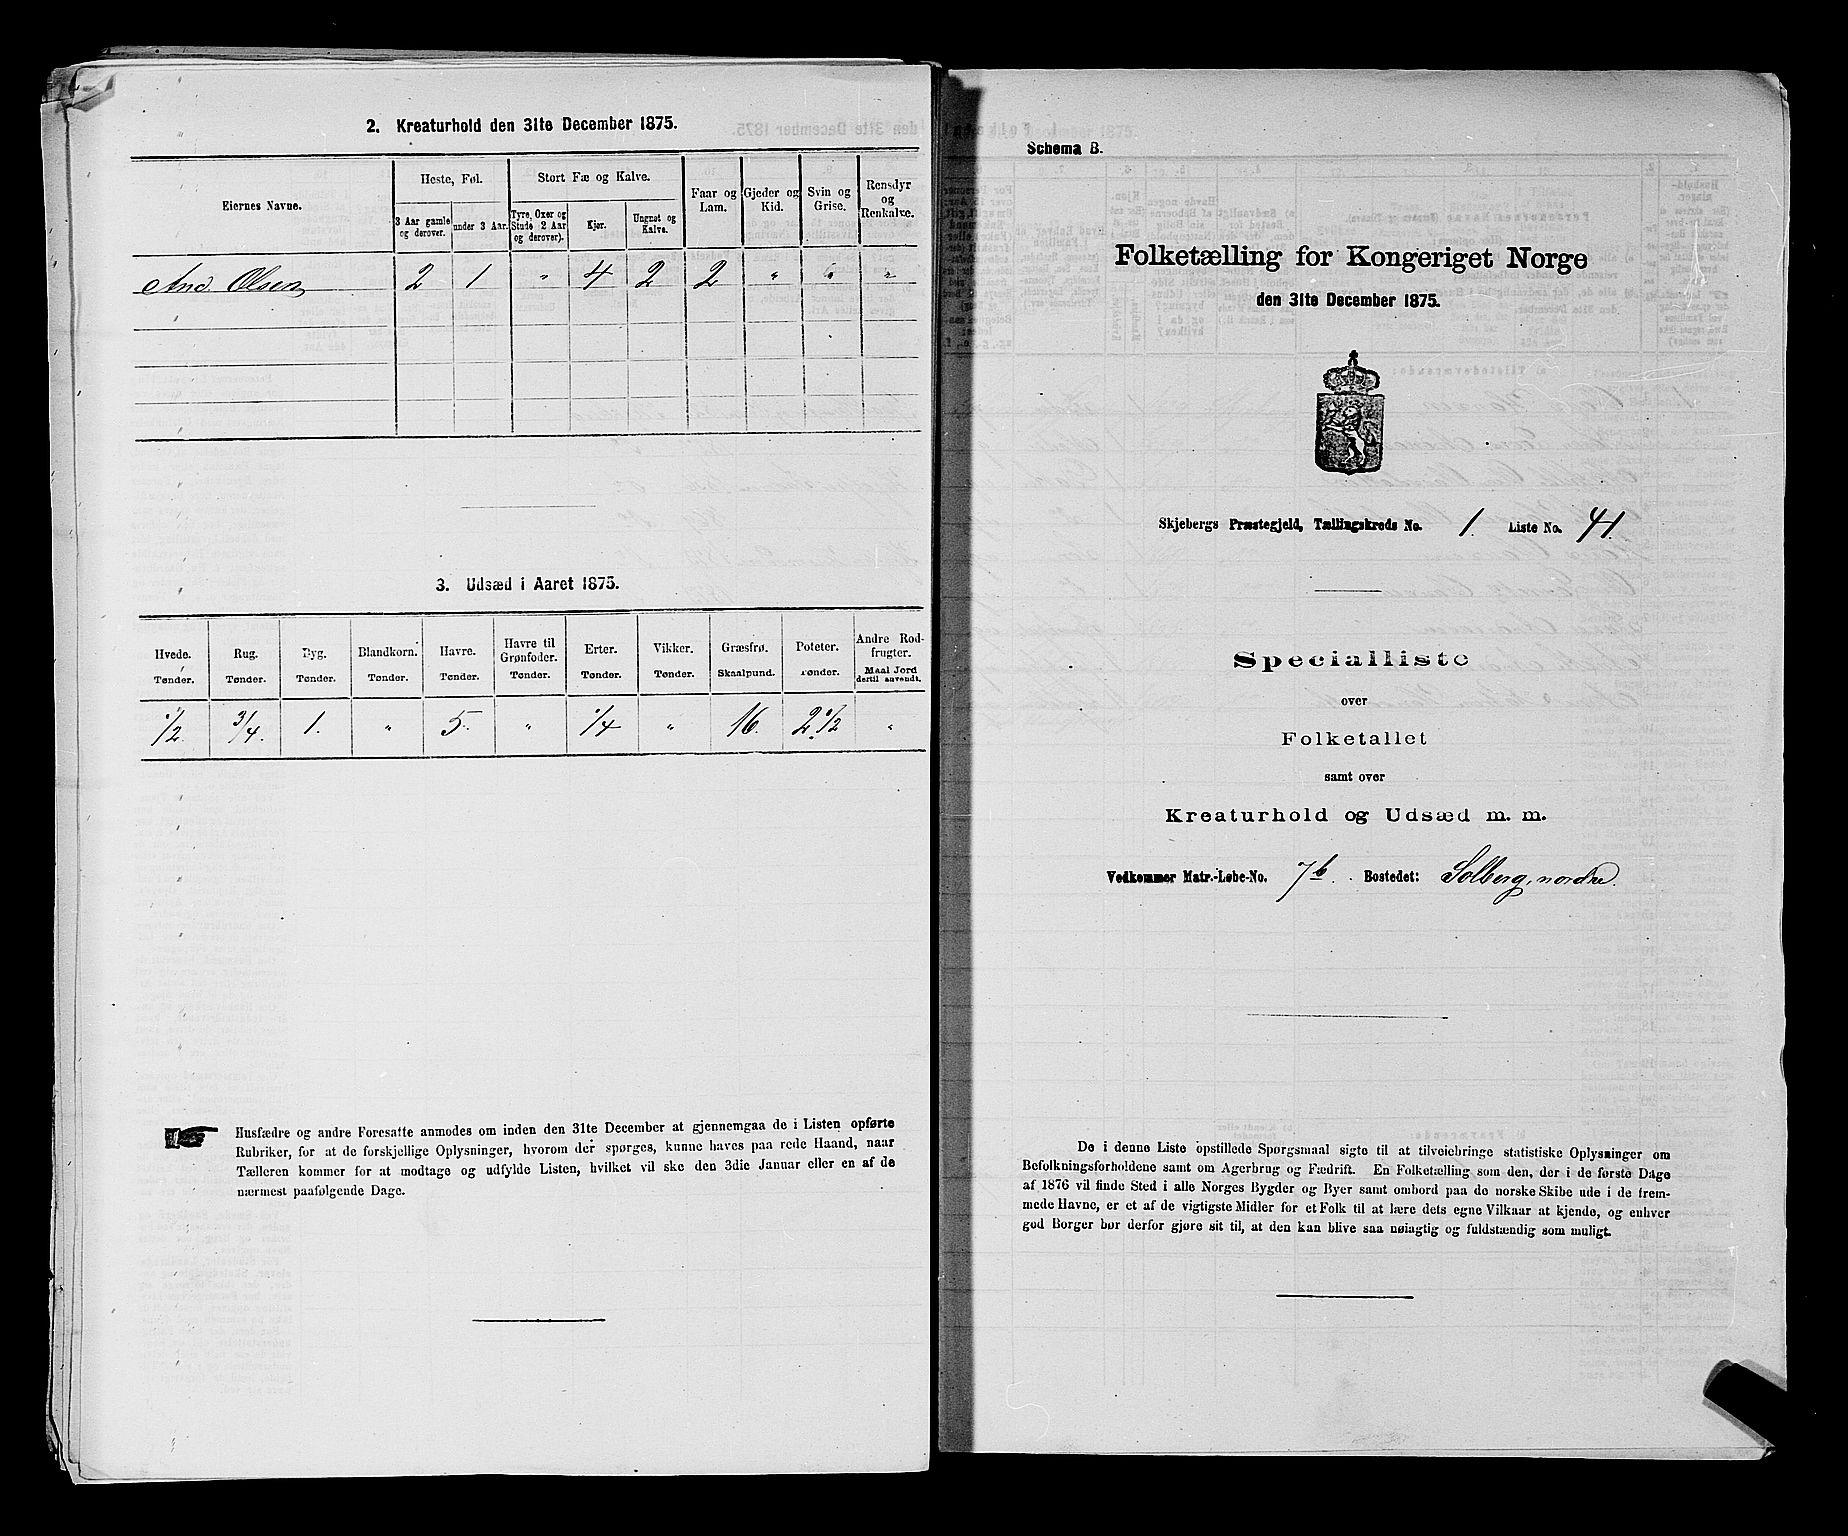 2. Kreaturhold den 31te December 1875.
Eiernes Navne.
Heste, Føl.
Stort Fæ og Kalve.
Faar og Lam.
Gjeder og Kid.
Svin og Grise.
Rensdyr og Renkalve.
3 Aar gamle og derover.
under 3 Aar.
Tyre, Oxer og Stude 2 Aar og derover).
Kjør.
Ungnøt og Kalve.
And. Olsen 2 1 " 4 2 2 " " "
3. Udsæd i Aaret 1875.
Hvede. Rug. Byg. Blandkorn. Havre. Havre til Grønfoder. Erter. Vikker. Græsfrø. Poteter. Andre Rodfrugter.
Tønder. Tønder. Tønder. Tønder. Tønder. Tønder. Tønder. Tønder. Skaalpund. Tønder. Maal Jord dertil anvendt.
1/2 3/4. 1. " 5. " 1/4 " 16. 2 1/2 "
Husfædre og andre Foresatte anmodes om inden den 31te December at gjennemgaa de i Listen opførte
Rubriker, for at de forskjellige Oplysninger, hvorom der spørges, kunne haves paa rede Haand, naar
Tælleren kommer for at modtage og udfylde Listen, hvilket vil ske den 3die Januar eller en af de
nærmest paafølgende Dage.
Schema B.
Folketælling for Kongeriget Norge
den 31te December 1875.
Skjebergs Præstegjeld, Tællingskreds No. 1. Liste No. 41.
Specialliste
over
Folketallet
samt over
Kreaturhold og Udsæd m. m.
Vedkommer Matr.-Løbe-No. 7b. Bostedet: Solberg, nordre.
De i denne Liste opstillede Spørgsmaal sigte til at tilveiebringe statistiske Oplysninger om
Befolkningsforholdene samt om Agerbrug og Fædrift. En Folketælling som den, der i de første Dage
af 1876 vil finde Sted i alle Norges Bygder og Byer samt ombord paa de norske Skibe ude i de frem-
mede Havne, er et af de vigtigste Midler for et Folk til at lære dets egne Vilkaar at kjende, og enhver
god Borger bør derfor gjøre sit til, at den kan blive saa nøiagtig og fuldstændig som muligt.